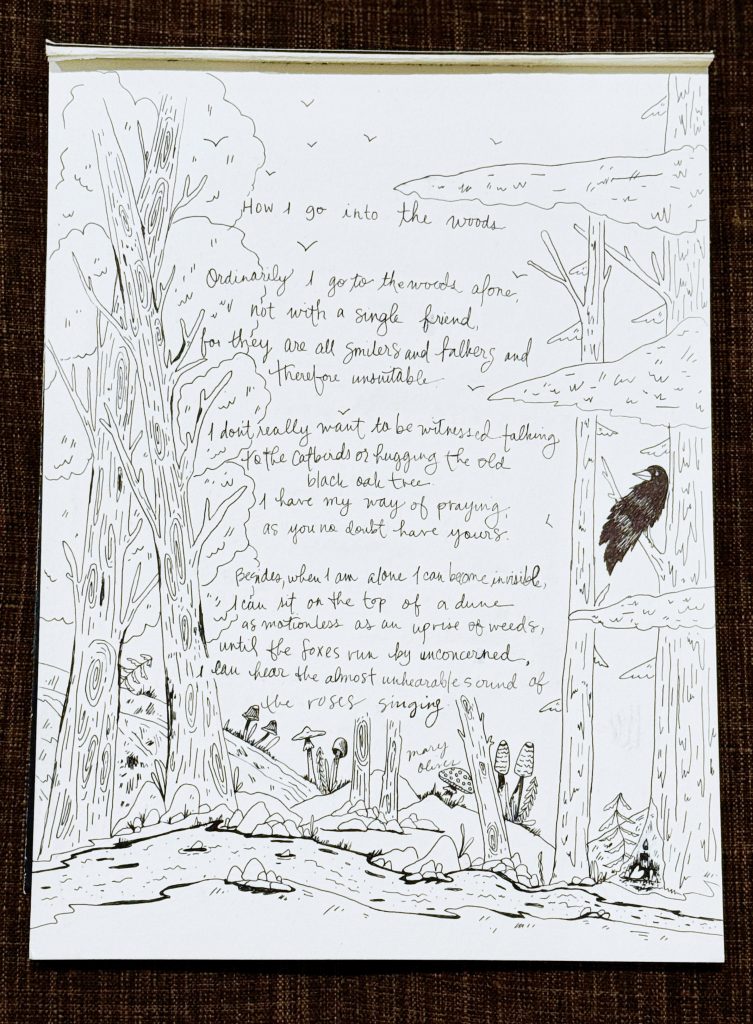 How I go into the woods
Ordinarily I go to the woods alone,
not with a single friend,
for they are all smilers and talkers and
therefore unsuitable.
I don't really want to be witnessed talking
to the catbirds or hugging the old
black oak tree.
I have my way of praying,
as you no doubt have yours.
Besides, when I am alone I can become invisible,
I can sit on the top of a dune
as motionless as an uprise of weeds,
until the foxes run by unconcerned,
I can hear the almost unhearable sound of
the roses singing
mary
oliver